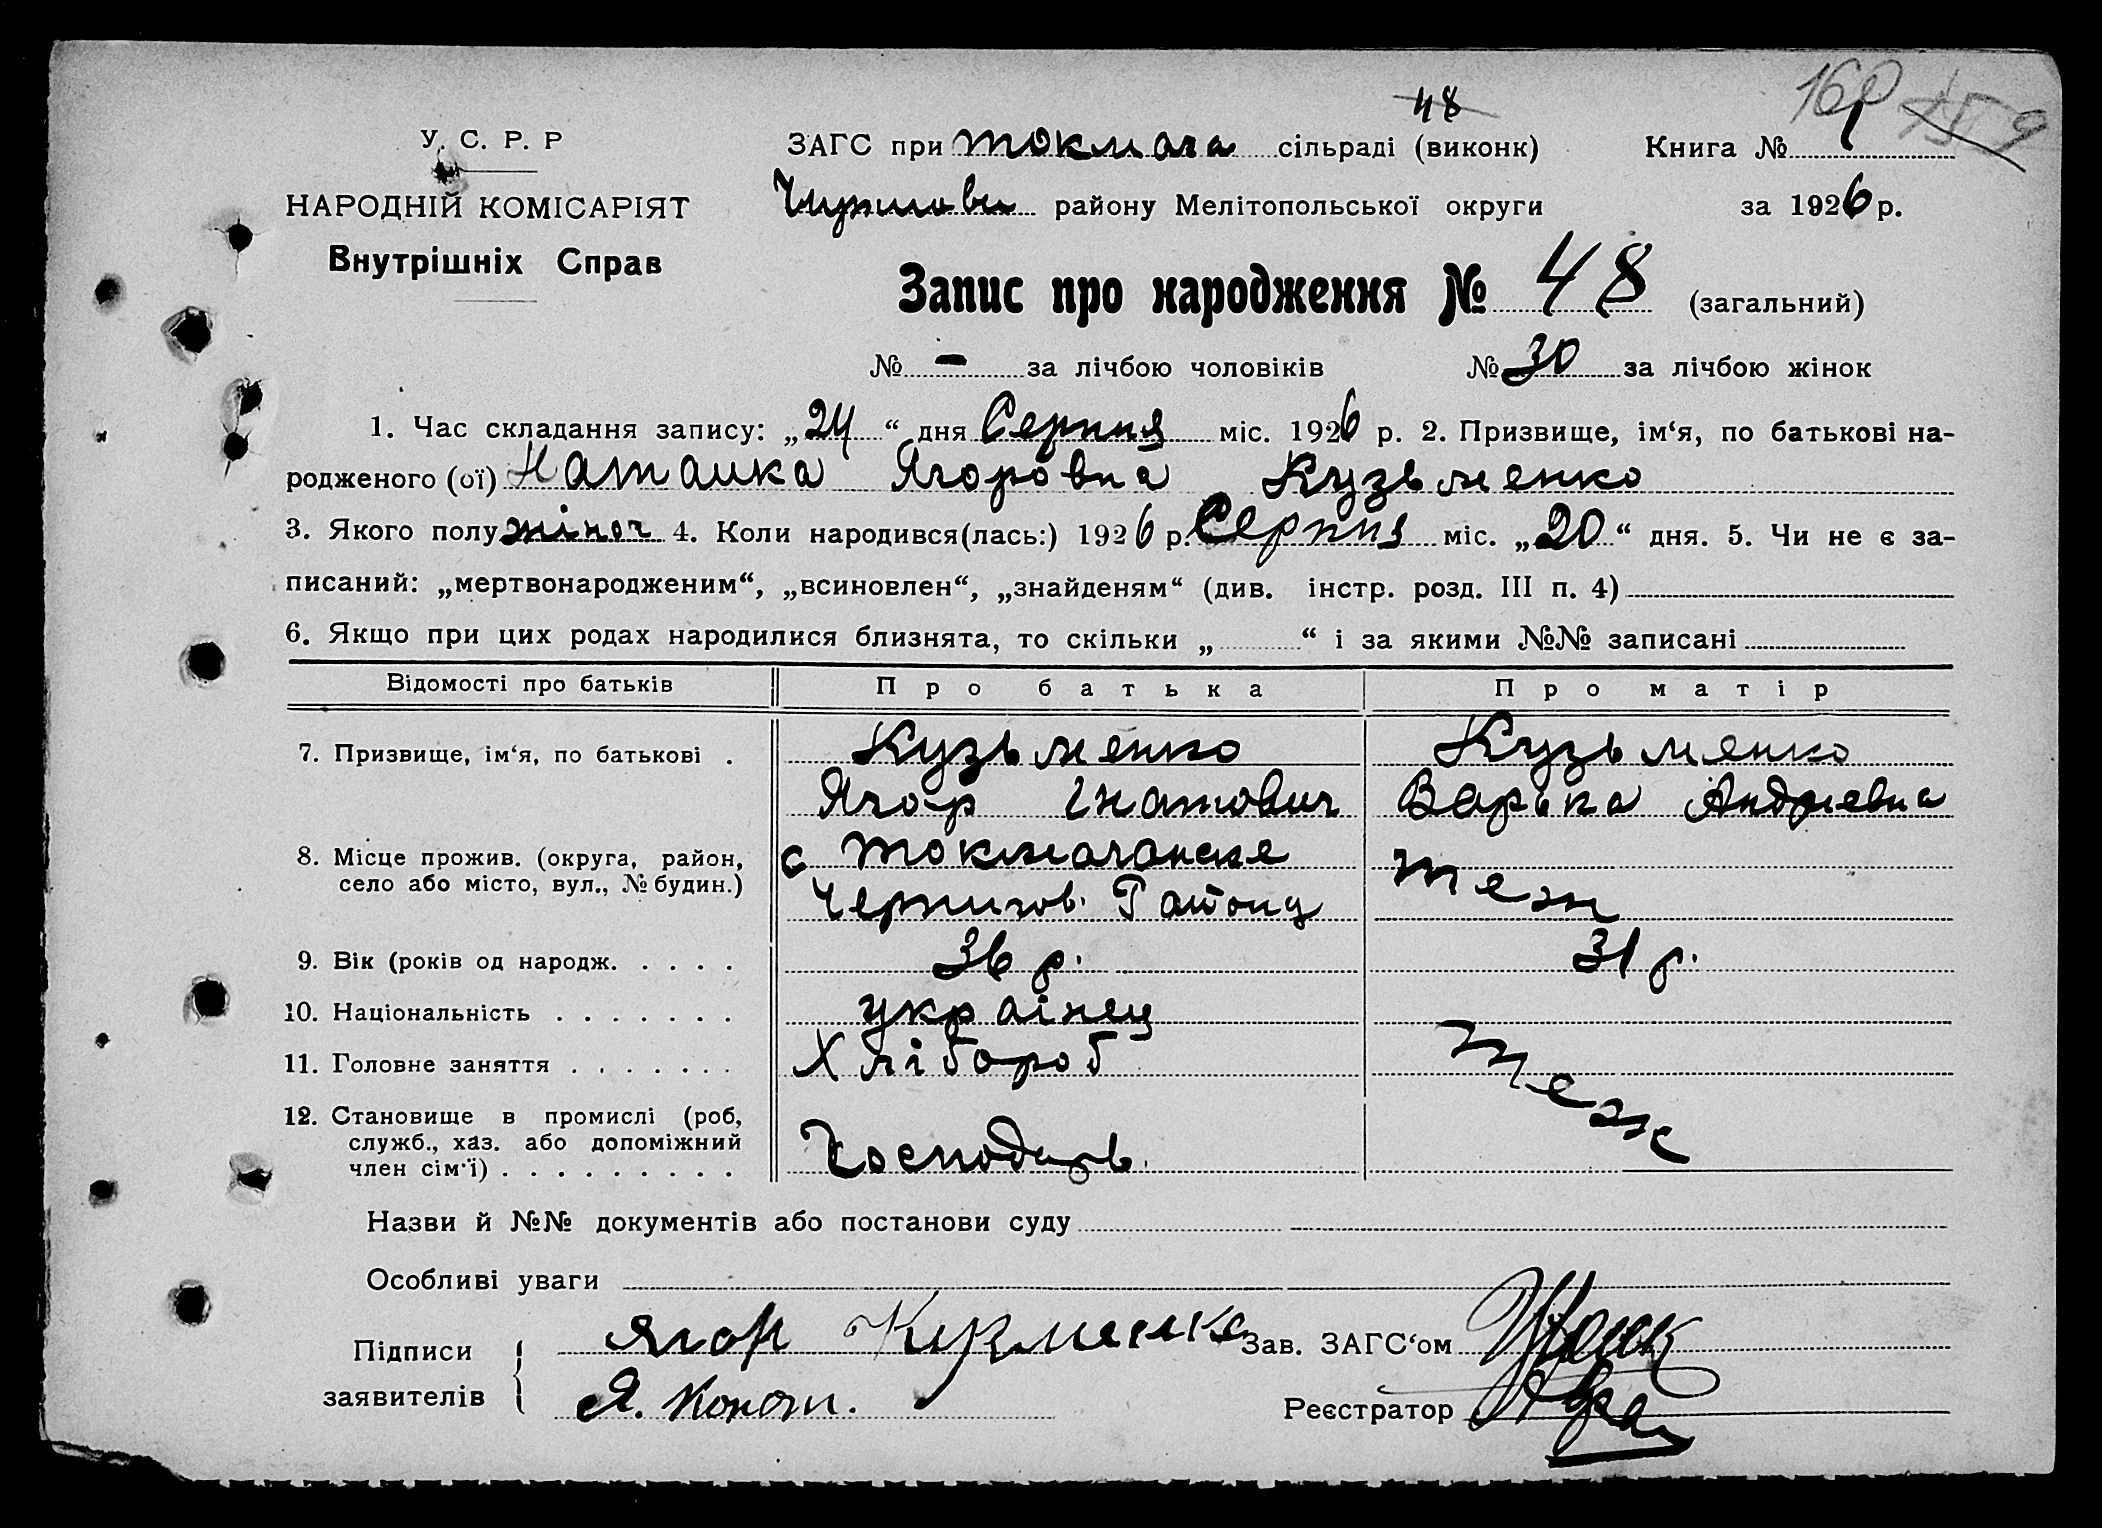 160 159
48
У. С. Р. Р
ЗАГС при Токмача сільраді (виконк) Книга № 1
НАРОДНІЙ КОМІСАРІЯТ
району Мелітопольської округи за 1926 р.
Внутрішніх Справ
Запис про народження № 48 (загальний)
№ - за лічбою чоловіків № 30 за лічбою жінок
1. Час складання запису: „24“ дня Серпня міс. 1926 р. 2. Призвище, ім‘я, по батькові на-
родженого (ої) Наталка Ягоровна Кузьменко
3. Якого полу жіноч 4. Коли народився(лась:) 1926 р. Серпня міс. „20“ дня. 5. Чи не є за-
писаний: „мертвонародженим“, „всиновлен“, „знайденям“ (див. інстр. розд. III п. 4)
6. Якщо при цих родах народилися близнята, то скільки „ “ і за якими №№ записані
Відомості про батьків Про батька Про матір
7. Призвище, ім‘я, по батькові . Кузьменко Кузьменко
Ягор Гнатович Варька Андріевна
8. Місце прожив. (округа, район, с
село або місто, вул., № будин.) Чернигов. Району теж
9. Вік (років од народж. . . . . 36 р. 31 р.
10. Національність . . . . . . . українец
11. Головне заняття . . . . . . . Хлібороб теж
12. Становище в промислі (роб,
служб., хаз. або допоміжний Господарь
член сім‘ї) . . . . . . . . .
Назви й №№ документів або постанови суду
Особливі уваги
Підписи Ягор Кузменко Зав. ЗАГС‘ом
заявителів Я. Реєстратор